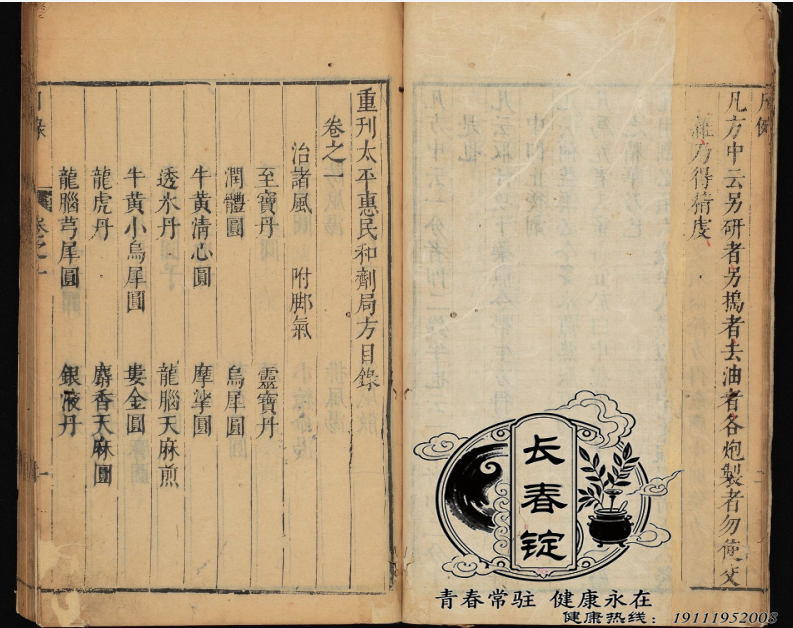 凡例
凡方中云另研者另搗者去油者各炮製者勿使交
雜方得精度
重刊太平惠民和劑局方目錄
卷之一
治諸風 附脚氣
至寶丹 靈寶丹
潤體圓 烏犀圓
牛黃清心圓 摩挲圓
透氷丹 龍腦天麻煎
牛黃小烏犀圓 婁金圓
龍虎丹 麝香天麻圓
龍腦芎犀圓 銀液丹
目錄 卷之一 一
长春锭
青春常驻 健康永在
健康热线：19111952008